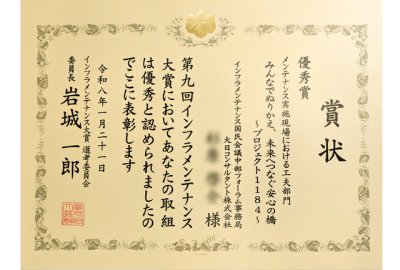 賞状
優秀賞
メンテナンス実施現場における工夫部門
みんなでぬりかえ、未来へつなぐ安心の橋
～プロジェクト1184～
インフラメンテナンス国民会議中部フォーラム事務局
大日コンサルタント株式会社
様
第九回インフラメンテナンス
大賞においてあなたの取組
は優秀と認められましたの
でここに表彰します
令和八年一月二十一日
インフラメンテナンス大賞 選考委員会
委員長 岩城一郎